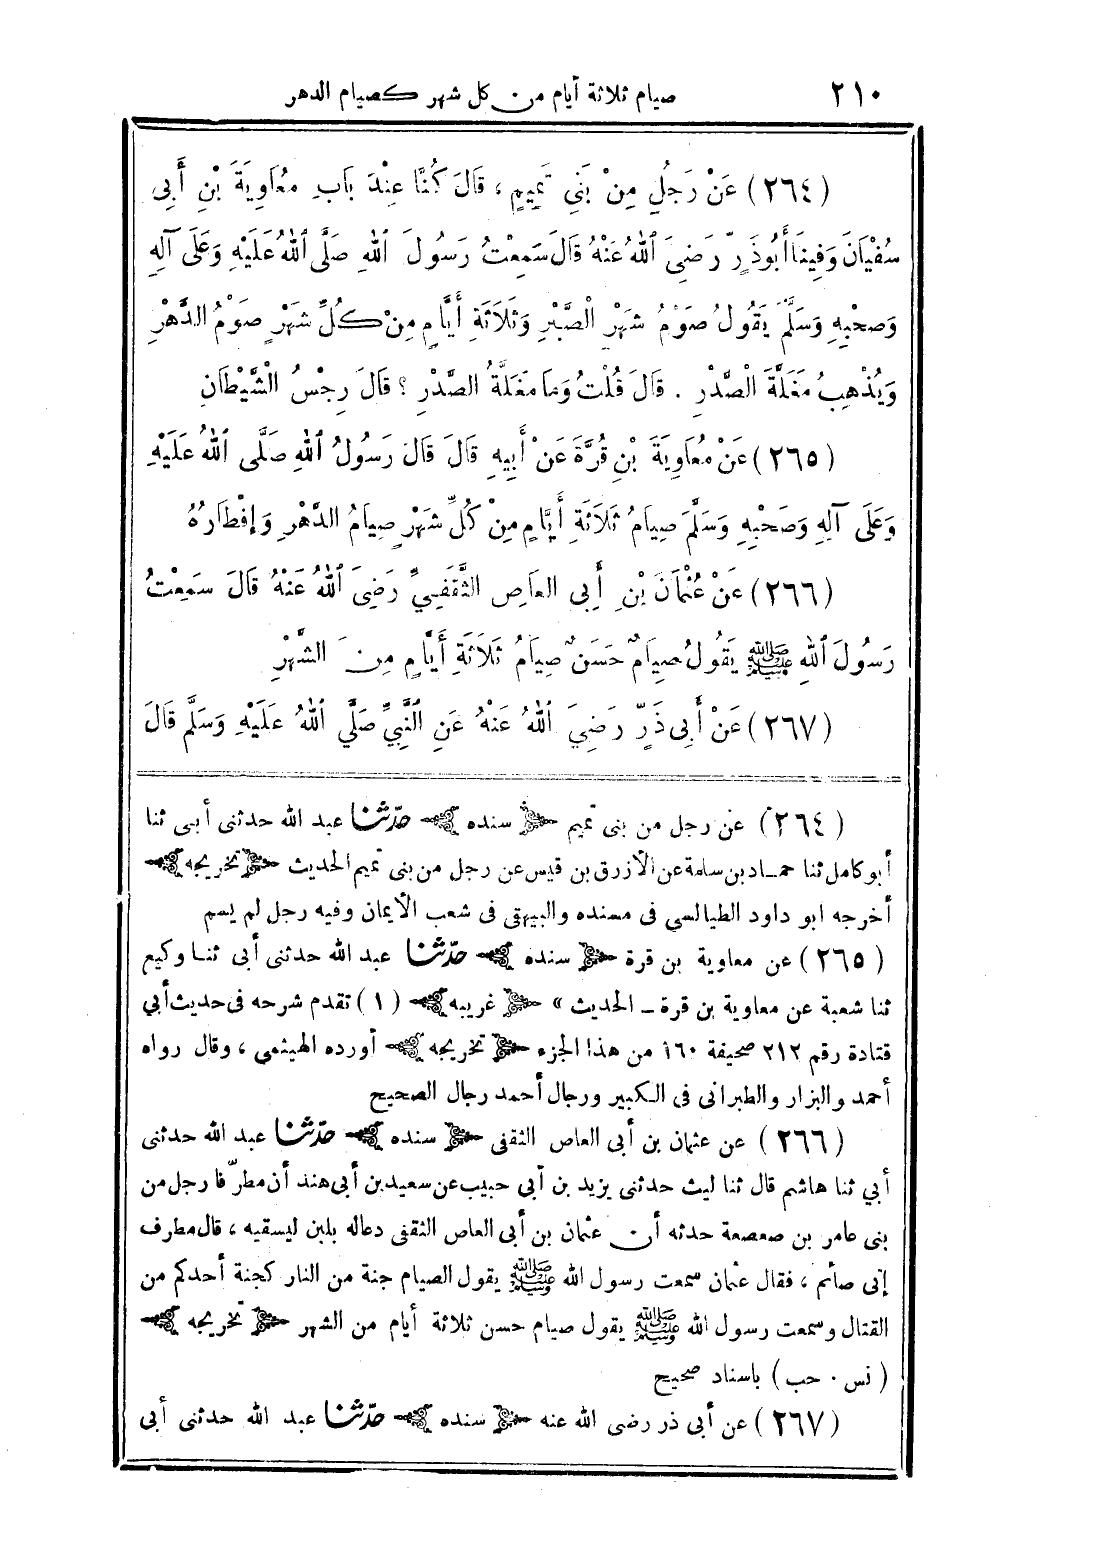 ٢١٠ صيام ثلاثة أيام من كل شهر كصيام الدهر
(٢٦٤) عَنْ رَجُلٍ مِنْ بَنِي تَمِيمٍ، قَالَ كُنَّا عِنْدَ بَابِ مُعَاوِيَةَ بْنِ أَبِي
سُفْيَانَ وَفِينَا أَبُو ذَرٍّ رَضِيَ اللهُ عَنْهُ قَالَ سَمِعْتُ رَسُولَ اللهِ صَلَّى اللهُ عَلَيْهِ وَعَلَى آلِهِ
وَصَحْبِهِ وَسَلَّمَ يَقُولُ صَوْمُ شَهْرِ الصَّبْرِ وَثَلَاثَةِ أَيَّامٍ مِنْ كُلِّ شَهْرٍ صَوْمُ الدَّهْرِ
وَيُذْهِبُ مَغَلَّةَ الصَّدْرِ . قَالَ قُلْتُ وَمَا مَغَلَّةُ الصَّدْرِ ؟ قَالَ رِجْسُ الشَّيْطَانِ
(٢٦٥) عَنْ مُعَاوِيَةَ بْنِ قُرَّةَ عَنْ أَبِيهِ قَالَ قَالَ رَسُولُ اللهِ صَلَّى اللهُ عَلَيْهِ
وَعَلَى آلِهِ وَصَحْبِهِ وَسَلَّمَ صِيَامُ ثَلَاثَةِ أَيَّامٍ مِنْ كُلِّ شَهْرٍ صِيَامُ الدَّهْرِ وَإِفْطَارُهُ
(٢٦٦) عَنْ عُثْمَانَ بْنِ أَبِي العَاصِ الثَّقَفِيِّ رَضِيَ اللهُ عَنْهُ قَالَ سَمِعْتُ
رَسُولَ اللهِ ﷺ يَقُولُ صِيَامٌ حَسَنٌ صِيَامُ ثَلَاثَةِ أَيَّامٍ مِنَ الشَّهْرِ
(٢٦٧) عَنْ أَبِي ذَرٍّ رَضِيَ اللهُ عَنْهُ عَنِ النَّبِيِّ صَلَّى اللهُ عَلَيْهِ وَسَلَّمَ قَالَ
(٢٦٤) عن رجل من بنى تميم ﴿ سنده ﴾ حدّثنا عبد الله حدثنى أبى ثنا
أبو كامل ثنا حمـاد بن سلمة عن الأزرق بن قيس عن رجل من بنى تميم الحديث ﴿ تخريجه ﴾
أخرجه ابو داود الطيالسي فى مسنده والبيهقى فى شعب الأيمان وفيه رجل لم يسم
(٢٦٥) عن معاوية بن قرة ﴿ سنده ﴾ حدّثنا عبد الله حدثنى أبى ثنا وكيع
ثنا شعبة عن معاوية بن قرة ـ الحديث » ﴿ غريبه ﴾ (١) تقدم شرحه فى حديث أبي
قتادة رقم ٢١٢ صحيفة ١٦٠ من هذا الجزء ﴿ تخريجه ﴾ أورده الهيثمى ، وقال رواه
أحمد والبزار والطبرانى فى الكبير ورجال أحمد رجال الصحيح
(٢٦٦) عن عثمان بن أبى العاص الثقفى ﴿ سنده ﴾ حدّثنا عبد الله حدثنى
أبي ثنا هاشم قال ثنا ليث حدثنى يزيد بن أبى حبيب عن سعيد بن أبى هند أن مطرّفا رجل من
بنى عامر بن صعصعة حدثه أن عثمان بن أبى العاص الثقفى دعا له بلبن ليسقيه ، قال مطرف
إنى صائم ، فقال عثمان سمعت رسول الله ﷺ يقول الصيام جنة من النار كجنة أحدكم من
القتال وسمعت رسول الله ﷺ يقول صيام حسن ثلاثة أيام من الشهر ﴿ تخريجه ﴾
(نس . حب) باسناد صحيح
(٢٦٧) عن أبى ذر رضى الله عنه ﴿ سنده ﴾ حدّثنا عبد الله حدثنى أبى